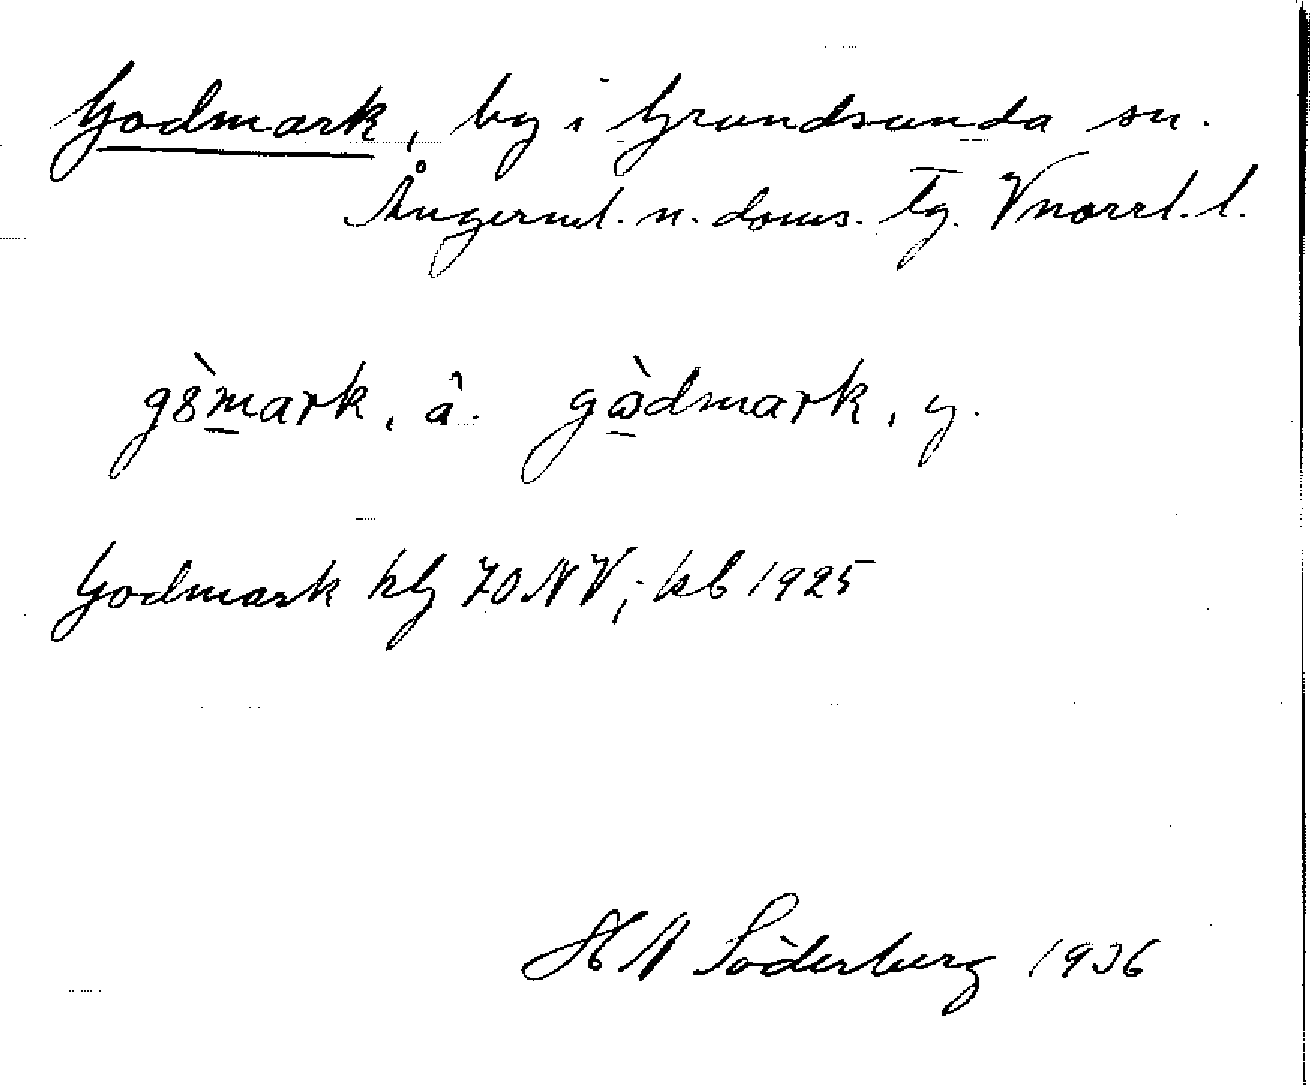 Godmark, by i Grundsunda sn.
Ångerml. n. doms. tg. Vnorrl. l.
g8̀mark, å. gɷ̀dmark, y.
Godmark hbl 70 NV; kb 1925
H N Söderberg 1936